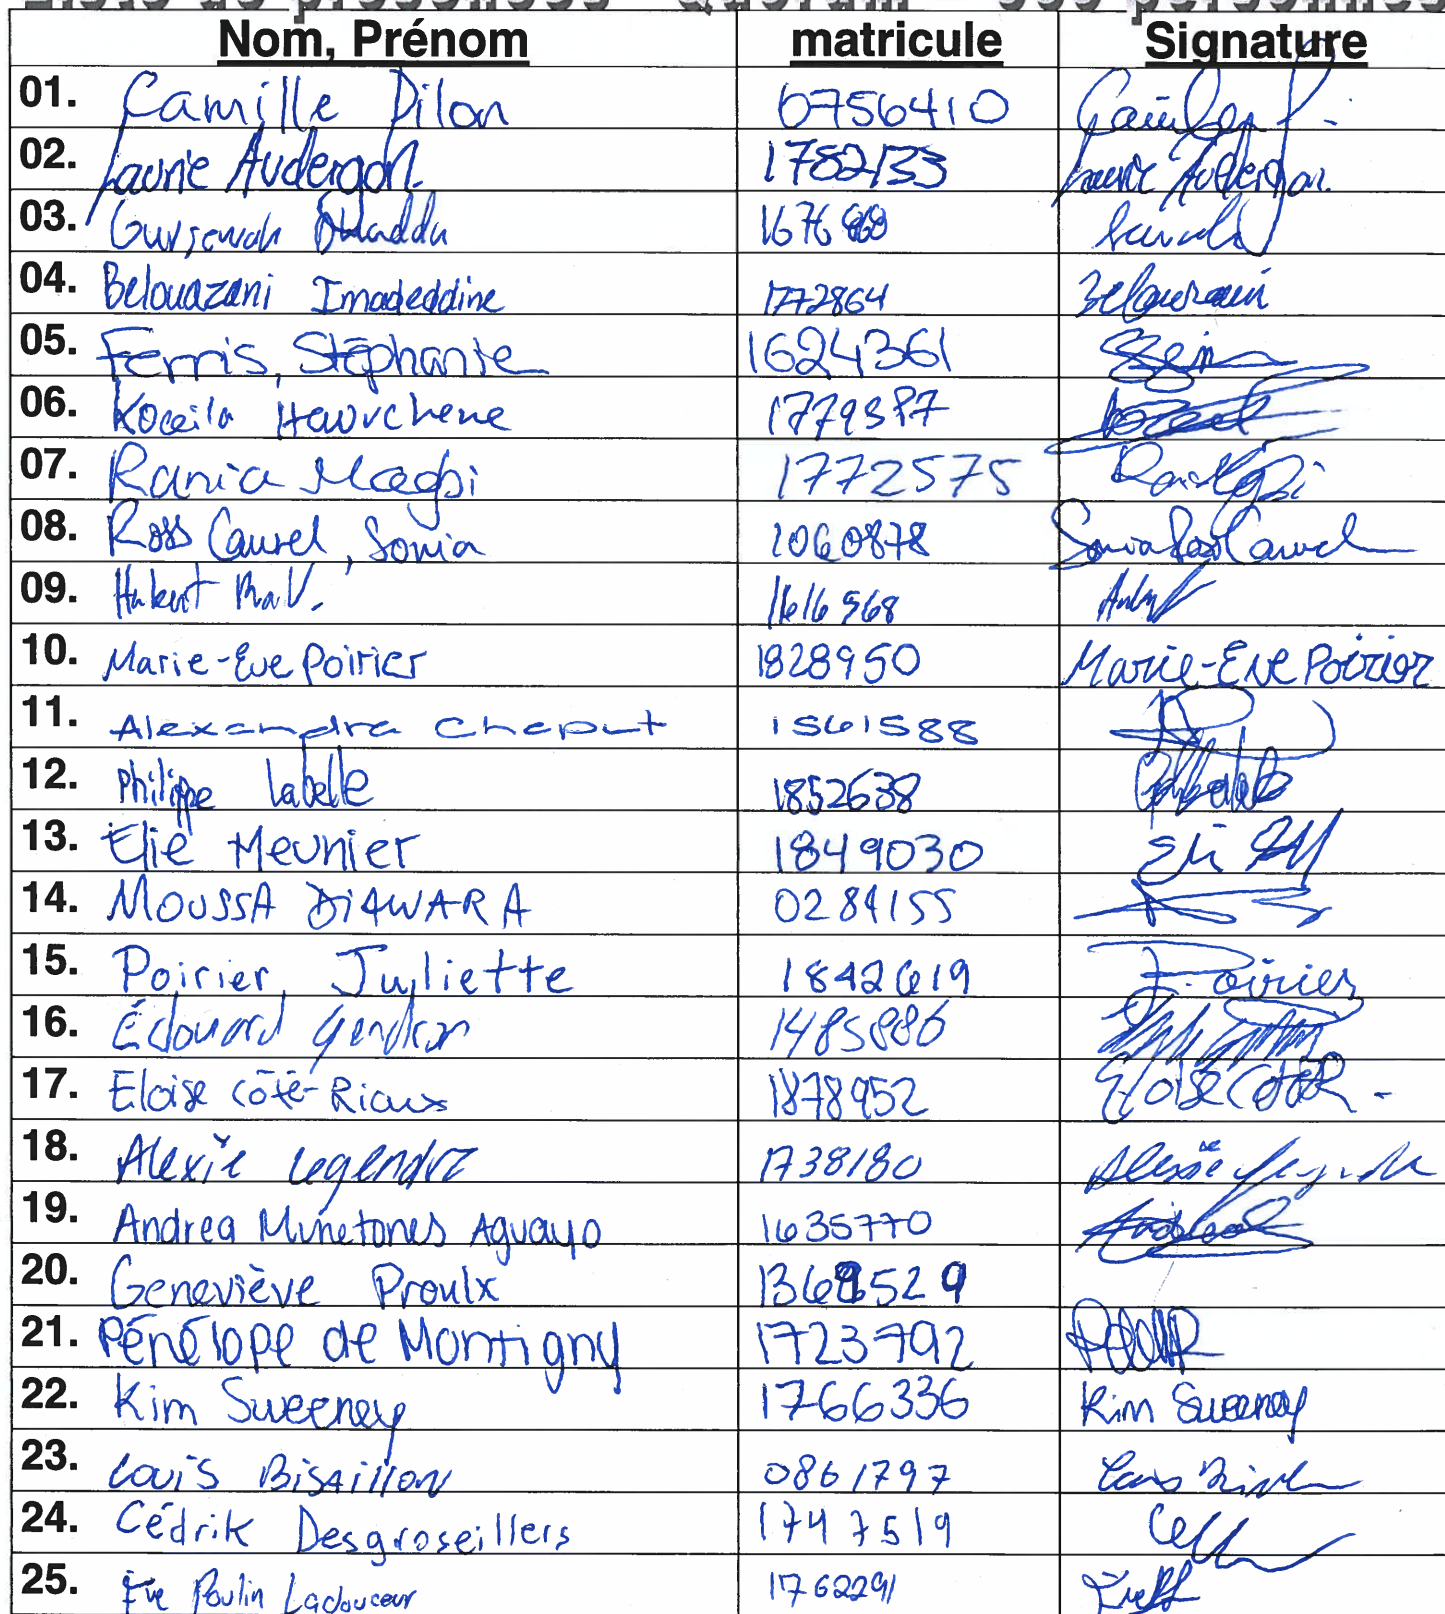 Liste de présences Quorum - 500 personnes
Nom, Prénom matricule Signature
01. Camille Pilon 0756410
02. Laurie Audergon 1782133 Laurie Audergon
03. 1676
04. Belouazani Imadeddine 1772864 Belouazani
05. Ferris, Stéphanie 1624361
06. Koceila Hawrchene 1779387
07. Rania Magbi 1772575
08. Ross Caurel, Sonia 1060878 Sonia Ross Caurel
09. Hubert 1616568
10. Marie-Eve Poirier 1828950 Marie-Eve Poirier
11. Alexandra Chaput 1561588
12. Philippe Labelle 1852638
13. Élie Meunier 1849030
14. MOUSSA DIAWARA 0284155
15. Poirier, Juliette 1842619 J. Poirier
16. Édouard Gendron 1485886
17. Eloïse Côté-Rioux 1878952
18. Alexie Legendre 1738180 Alexie
19. Andrea Munetones Aguayo 1635770
20. Geneviève Proulx 1369529
21. Pénélope de Montigny 1723792
22. Kim Sweeney 1766336 Kim Sweeney
23. Louis Bisaillon 0861797
24. Cédrik Desgroseillers 1747519
25. Ève Poulin Ladouceur 1762291